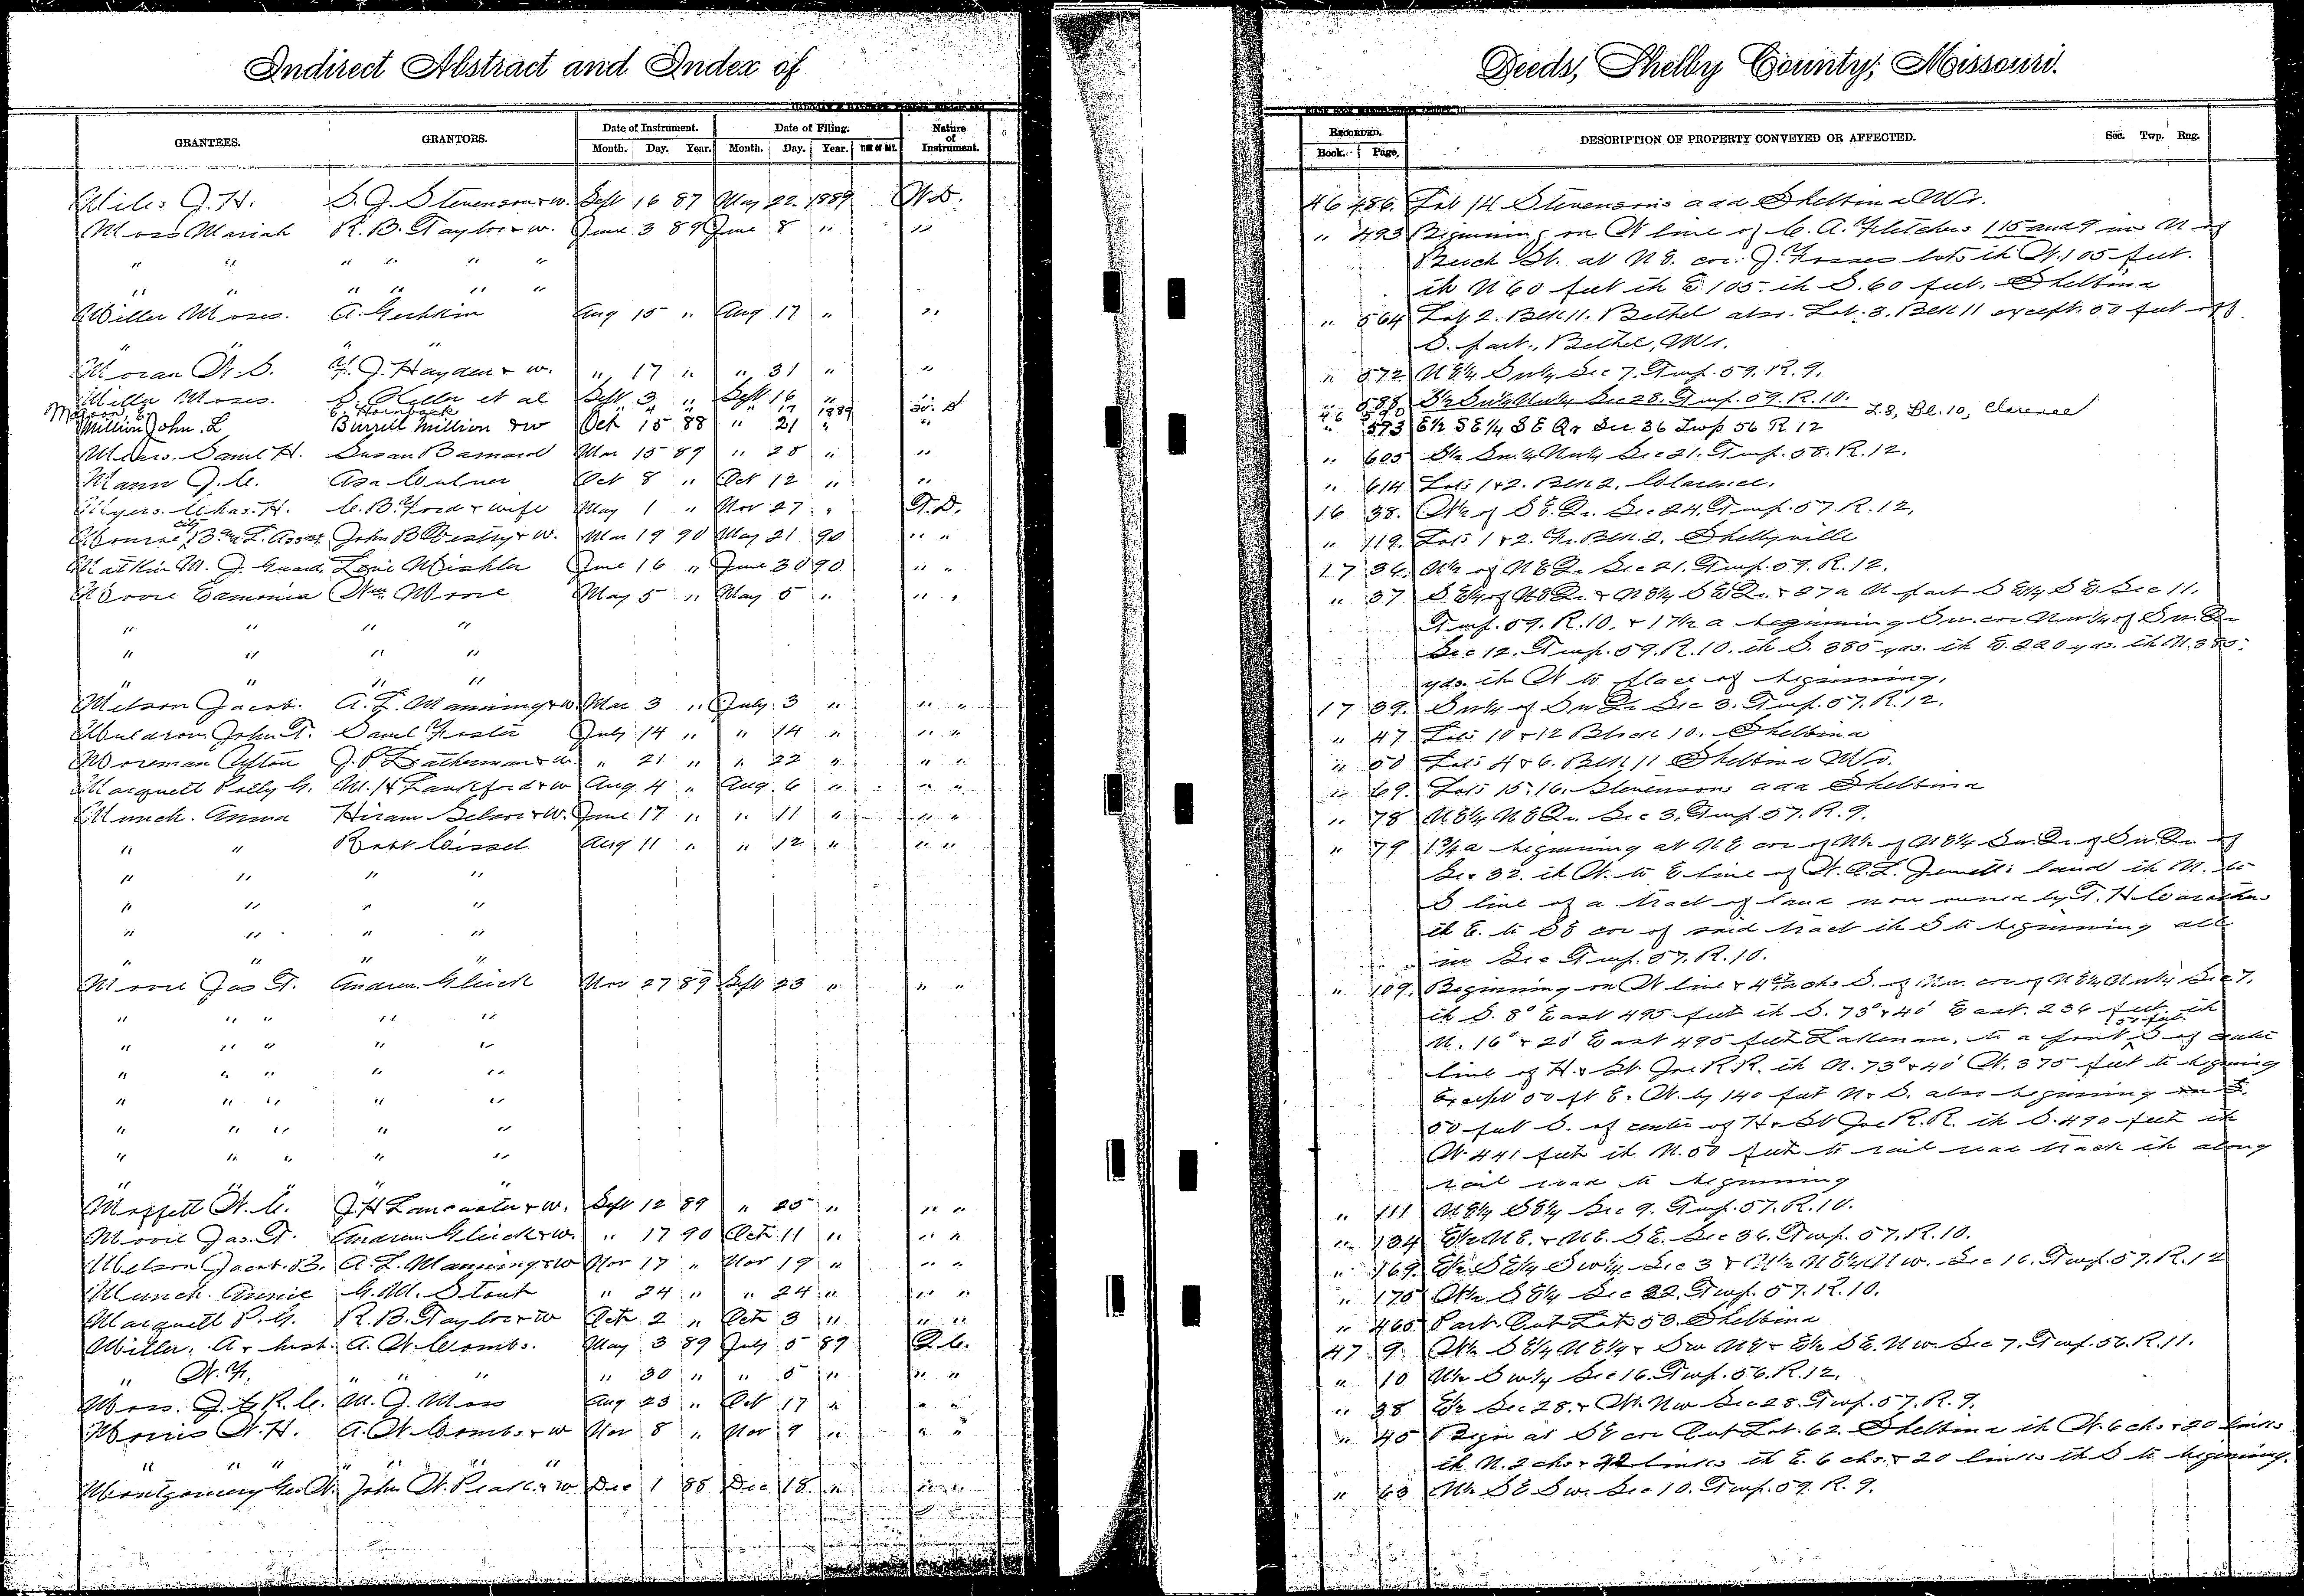 Indirect Abstract and Index of Deeds, Shelby County, Missouri.
GRANTEES. GRANTORS. Date of Instrument. Date of Filing. Nature of Instrument. RECORDED. DESCRIPTION OF PROPERTY CONVEYED OR AFFECTED. Sec. Twp. Rng.
Month. Day. Year. Month. Day. Year. Book. Page.
Miles J. H. S. J. Stevenson & w. Sept 16 87 May 22 1889 W.D. 46 486. Lot 14 Stevensons add Shelbina Mo.
Moss Mariah R. B. Taylor & w. June 3 89 June 8 " " " 493 Beginning on W line of C. A. Fletchers 115 and 9 in N of
" " " " " " Beech St. at N E. cor. J. lots th W. 105 feet.
" " " " " " th N 60 feet th E 105. th S. 60 feet. Shelbina
Miller Moses. A. Aug 15 " Aug 17 " " " 564 Lot 2. Blk 11. Bethel also. Lot. 3. Blk 11 except. 50 feet off
" " " S. part., Bethel, Mo.
Moran W. S. J. Hayden & w. " 17 " " 31 " " " 572 N E¼ Sw¼ Sec 7. Twp. 59. R. 9.
Miller Moses. et al Sept 3 " Sept 16 " " 588 S½ Sw¼ Nw¼ Sec 28. Twp. 59. R. 10.
E. Hornback " 4 " " 17 1889 46 590 L. 8, Bl. 10, Clarence
Million John. L Burrell Million & w Oct 15 88 " 21 " " " 593 E½ S E¼ S E Qr Sec 36 Twp 56 R 12
Saml H. Susan Barnard Mar 15 89 " 28 " " " 605 S½ Sw¼ Nw¼ Sec 21. Twp. 58. R. 12.
Mann J. C. Asa Oct 8 " Oct 12 " " " 614 Lots 1 & 2. Blk 2. Clarence.
Myers. Chas. H. C. B. Ford & wife May 1 " Nov 27 " T.D. 16 38. W½ of S E. Qr. Sec 24. Twp. 57. R. 12.
Monroe city B. & L. Asso. John B & w. Mar 19 90 May 21 90 " " " 119. Lots 1 & 2. Fr. Blk. 2. Shelbyville
M. J. Guard. June 16 " June 30 90 " " 17 36. N½ of N E Qr Sec 21. Twp. 59. R. 12.
Moore Wm Moore May 5 " May 5 " " " " 37 S E¼ of N E Qr. & N E¼ S E Qr. & 27 a N part S E¼ S E. Sec 11.
" " " " Twp. 59. R. 10. & 17½ a beginning Sw. cor Nw¼ of Sw. Qr
" " " " Sec 12. Twp. 59. R. 10. th S. 385 yds. th E. 220 yds. th N. 385.
" " " " yds. th W to place of beginning.
Melson Jacob. A. L. Manning & w. Mar 3 " July 3 " " " 17 39. Sw¼ of Sw Qr Sec 3. Twp. 57. R. 12.
Muldrow. John T. Saml Foster July 14 " " 14 " " " " 47 Lots 10 & 12 Block 10. Shelbina
J. P. Leatherman & w. " 21 " " 22 " " " " 50 Lots 4 & 6. Blk 11 Shelbina Mo.
Marquett Polly G. M. H Lankford & w Aug 4 " Aug. 6 " " " " 69. Lots 15. 16. Stevensons add Shelbina
Munch. Anna Hiram & w. June 17 " " 11 " " " " 78 N E¼ N E Qr. Sec 3. Twp. 57. R. 9.
" " Robt Cissel Aug 11 " " 12 " " " " 79 1¾ a beginning at N E cor of N½ of N E¼ Sw. Qr. of Sw. Qr. of
" " " " Sec 32. th W. to E line of W. C. L. Jewetts land th N. to
" " " " S line of a tract of land now owned by T. H.
" " " " th E. to S E cor of said tract th S to beginning all
" " " " in Sec Twp. 57. R. 10.
Moore Jas T. Andrew Gleick Nov 27 89 Sept 23 " " " " 109. Beginning on W line & chs S. of Nw. cor of N E¼ Nw¼ Sec 7.
" " " " " th S. 8° East 495 feet th S. 73° & 40' East. 236 feet. th
" " " " " N. 16° & 20' East 495 feet to a point 50 feet S of center
" " " " " line of H. & St. Joe R. R. th N. 73° & 40' W. 375 feet to begining
" " " " " Except 50 ft E. W. by 140 feet N & S. also beginning
" " " " " 50 feet S. of center of H & St Joe R. R. th S. 490 feet th
" " " " " W. 441 feet th N. 50 feet to rail road track th along
" " " " " rail road to beginning
Moffett W. C. J. H Lancaster & w. Sept 12 89 " 25 " " " " 111 N E¼ S E¼ Sec 9. Twp. 57. R. 10.
Moore Jas. T. Andrew Gleick & w. " 17 90 Oct. 11 " " " " 134 E½ N E. & N E. S E. Sec 36. Twp. 57. R. 10.
Melson Jacob. B. A. L. Manning & w Nov 17 " Nov 19 " " " " 169. E½ S E¼ S w¼ Sec 3 & N½ N E¼ N w. Sec 16. Twp. 57. R. 12
Munch. Annie G. M. Stout " 24 " " 24 " " " " 175 W½ S E¼ Sec 22. Twp. 57. R. 10.
Marquett P. G. R. B. Taylor & w Oct 2 " Oct 3 " " " " 465. Part. Out Lot 53. Shelbina
Miller. A. & husb. A. W. Combs. May 3 89 July 5 89 Q.C. 47 9. W½ S E¼ N E¼ & Sw N E & E½ S E. N w. Sec 7. Twp. 56. R. 11.
" " " " " 30 " " 5 " " " " 10 N½ Sw¼ Sec 16. Twp. 56. R. 12.
Moss. R. C. M. J. Moss Aug 23 " Oct 17 " " " " 38 E½ Sec 28. & W. Nw Sec 28. Twp. 57. R. 9.
Morris W. H. A. W Combs & w Nov 8 " Nov 9 " " " " 45 Begin at S E cor Out Lot. 62. Shelbina th W. 6 chs & 20 links
" " " " " th N. 2 chs & 42 links th E. 6 chs. & 20 links th S to beginning.
Montgomery Geo W. John W. & w Dec 1 88 Dec 18 " " " " 63 N½ S E Sw. Sec 10. Twp. 59. R. 9.